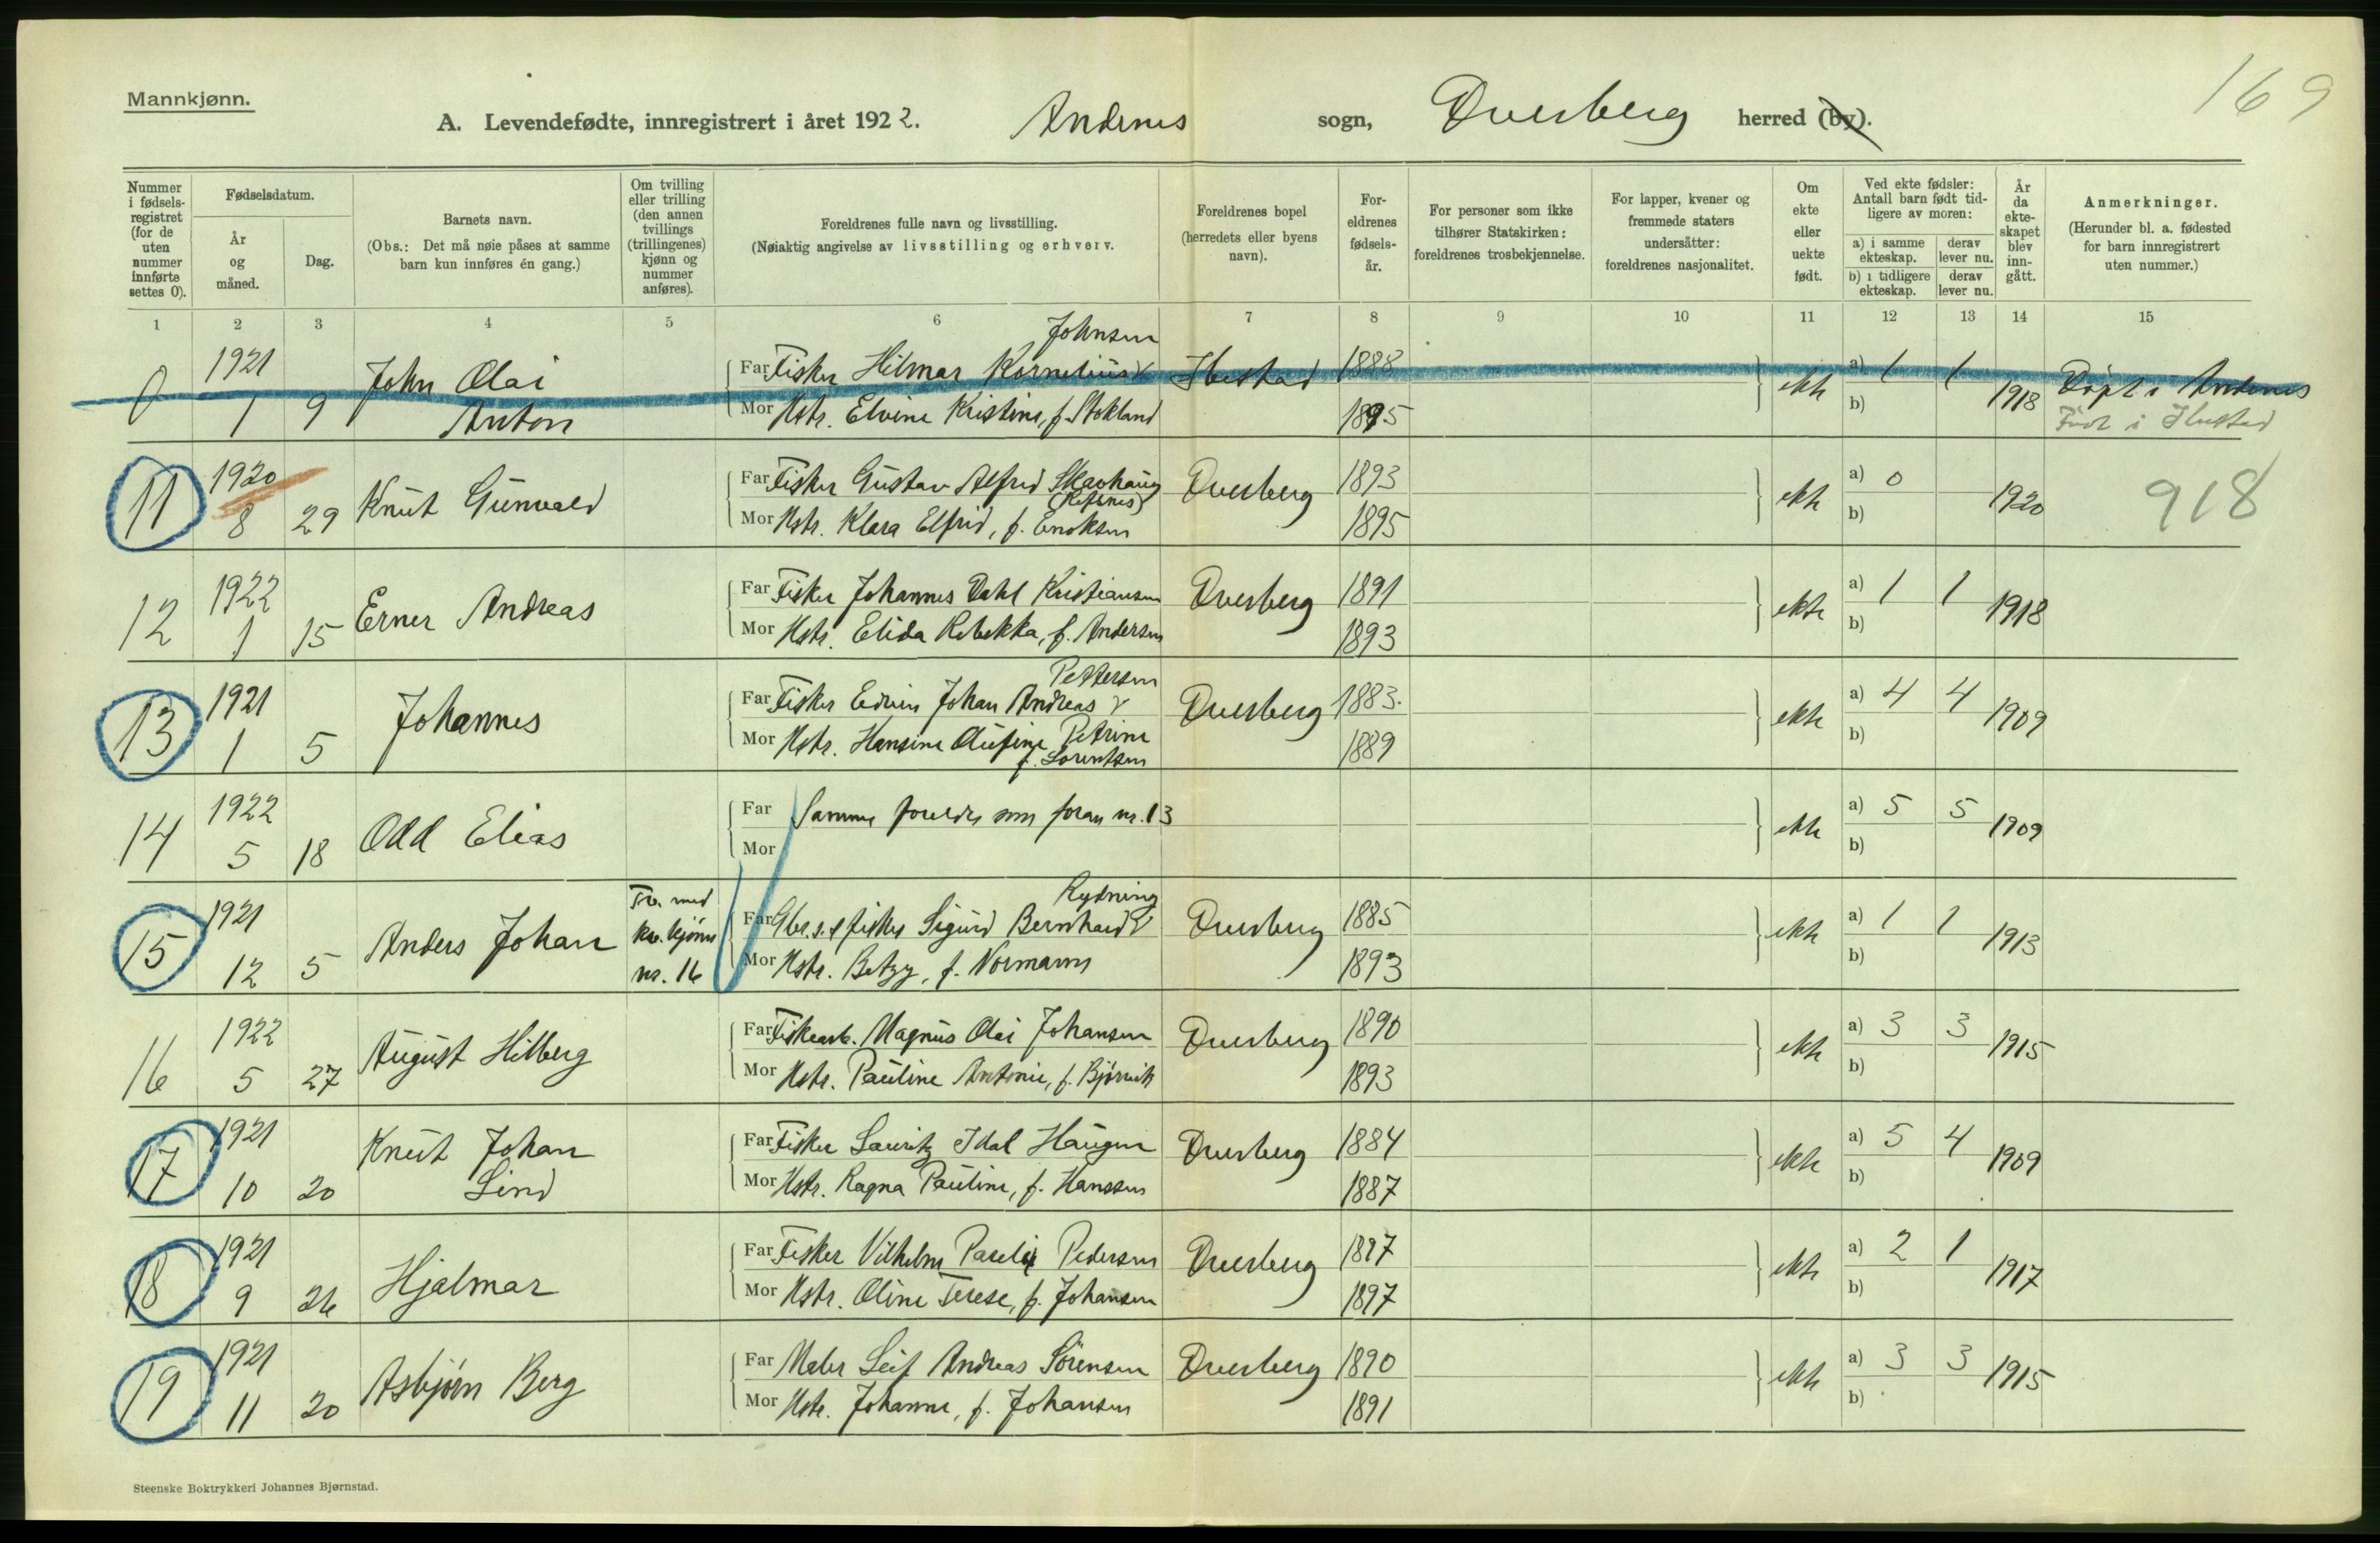 169
Mannkjønn.
A. Levendefødte, innregistrert i året 1922. Andenes sogn, Dverberg herred (by).
Nummer i fødsels-registret (for de uten nummer innførte settes 0).
Fødselsdatum.
År og måned.
Dag.
Barnets navn.
(Obs.: Det må nøie påses at samme barn kun innføres én gang.)
Om tvilling eller trilling (den annen tvillings (trillingenes) kjønn og nummer anføres).
Foreldrenes fulle navn og livsstilling.
(Nøiaktig angivelse av livsstilling og erhverv.
Foreldrenes bopel (herredets eller byens navn).
For-eldrenes fødsels-år.
For personer som ikke tilhører Statskirken: foreldrenes trosbekjennelse.
For lapper, kvener og fremmede staters undersåtter: foreldrenes nasjonalitet.
Om ekte eller uekte født.
Ved ekte fødsler: Antall barn født tid-ligere av moren:
a) i samme ekteskap.
derav lever nu.
b) i tidligere ekteskap.
derav lever nu.
År da ekte-skapet blev inn-gått.
Anmerkninger.
(Herunder bl. a. fødested for barn innregistrert uten nummer.)
1 2 3 4 5 6 7 8 9 10 11 12 13 14 15
Johnsen
0 1921 John Olai Far Fisker Hilmar Kornelius Ibestad 1888 ekte a) 1 1 1918 Døpt i Andenes
1 9 Anton Mor Hstr. Elvine Kristine, f. Stokland 1895 b) Født i Ibestad
11 1920 Knut Gunvald Far Fisker Gustav Alfred Skavhaug Dverberg 1893 ekte a) 0 1920 918
(Refsnes)
8 29 Mor Hstr. Klara Elfrid, f. Enoksen 1895 b)
12 1922 Erner Andreas Far Fisker Johannes Dahl Kristiansen Dverberg 1891 ekte a) 1 1 1918
1 15 Mor Hstr. Elida Rebekka, f. Andersen 1893 b)
Pettersen
13 1921 Johannes Far Fisker Edvin Johan Andreas Dverberg 1883. ekte a) 4 4 1909
1 5 Mor Hstr. Hansine Olufine Petrine 1889 b)
f. Lorentsen
14 1922 Odd Elias Far Samme foreldre som foran nr. 13 ekte a) 5 5 1909
5 18 Mor b)
Rydning
15 1921 Anders Johan Tv. med kv.kjønn nr. 16 Far Gbr.s. & fisker Sigurd Bernhard Dverberg 1885 ekte a) 1 1 1913
12 5 Mor Hstr. Betzy, f. Normann 1893 b)
16 1922 August Hilberg Far Fiskearb. Magnus Olai Johansen Dverberg 1890 ekte a) 3 3 1915
5 27 Mor Hstr. Pauline Antonie, f. Bjørnvik 1893 b)
17 1921 Knut Johan Far Fisker Lauritz Idal Haugen Dverberg 1884 ekte a) 5 4 1909
10 20 Lind Mor Hstr. Ragna Pauline, f. Hanssen 1887 b)
18 1921 Hjalmar Far Fisker Vilhelm Pareli Pedersen Dverberg 1897 ekte a) 2 1 1917
9 26 Mor Hstr. Oline Terese, f. Johansen 1897 b)
19 1921 Asbjørn Berg Far Maler Leif Andreas Sörensen Dverberg 1890 ekte a) 3 3 1915
11 20 Mor Hstr. Johanne, f. Johansen 1891 b)
Steenske Boktrykkeri Johannes Bjørnstad.